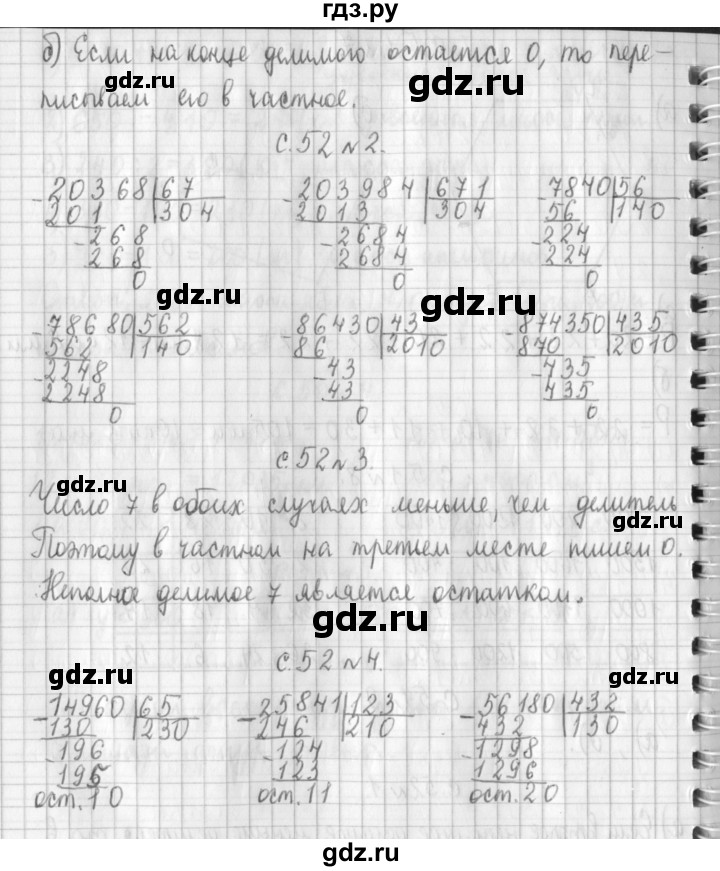 гдз.ру
б) Если на конце делимого остается 0, то пере-
писываем его в частное.
gdz.ru gdz.ru
с. 52 № 2.
- 20368 | 67 - 203984 | 671 - 7840 | 56
201 | 304 2013 | 304 56 | 140
- 268 - 2684 - 224
268 2684 224
0 0 0
gdz.ru gdz.ru
- 78680 | 562 - 86430 | 43 - 874350 | 435
562 | 140 86 | 2010 870 | 2010
- 2248 - 43 - 435
2248 43 435
0 0 0
с. 52 № 3.
gdz.ru
Число 7 в обоих случаях меньше, чем делитель
gdz.ru
Поэтому в частном на третьем месте пишем 0.
Неполное делимое 7 является остатком.
gdz.ru
с. 52 № 4.
gdz.ru
- 14960 | 65 - 25841 | 123 - 56180 | 432
130 | 230 246 | 210 432 | 130
- 196 - 124 - 1298
195 123 1296
ост. 10 ост. 11 ост. 20
gdz.ru gdz.ru
gdz.ru